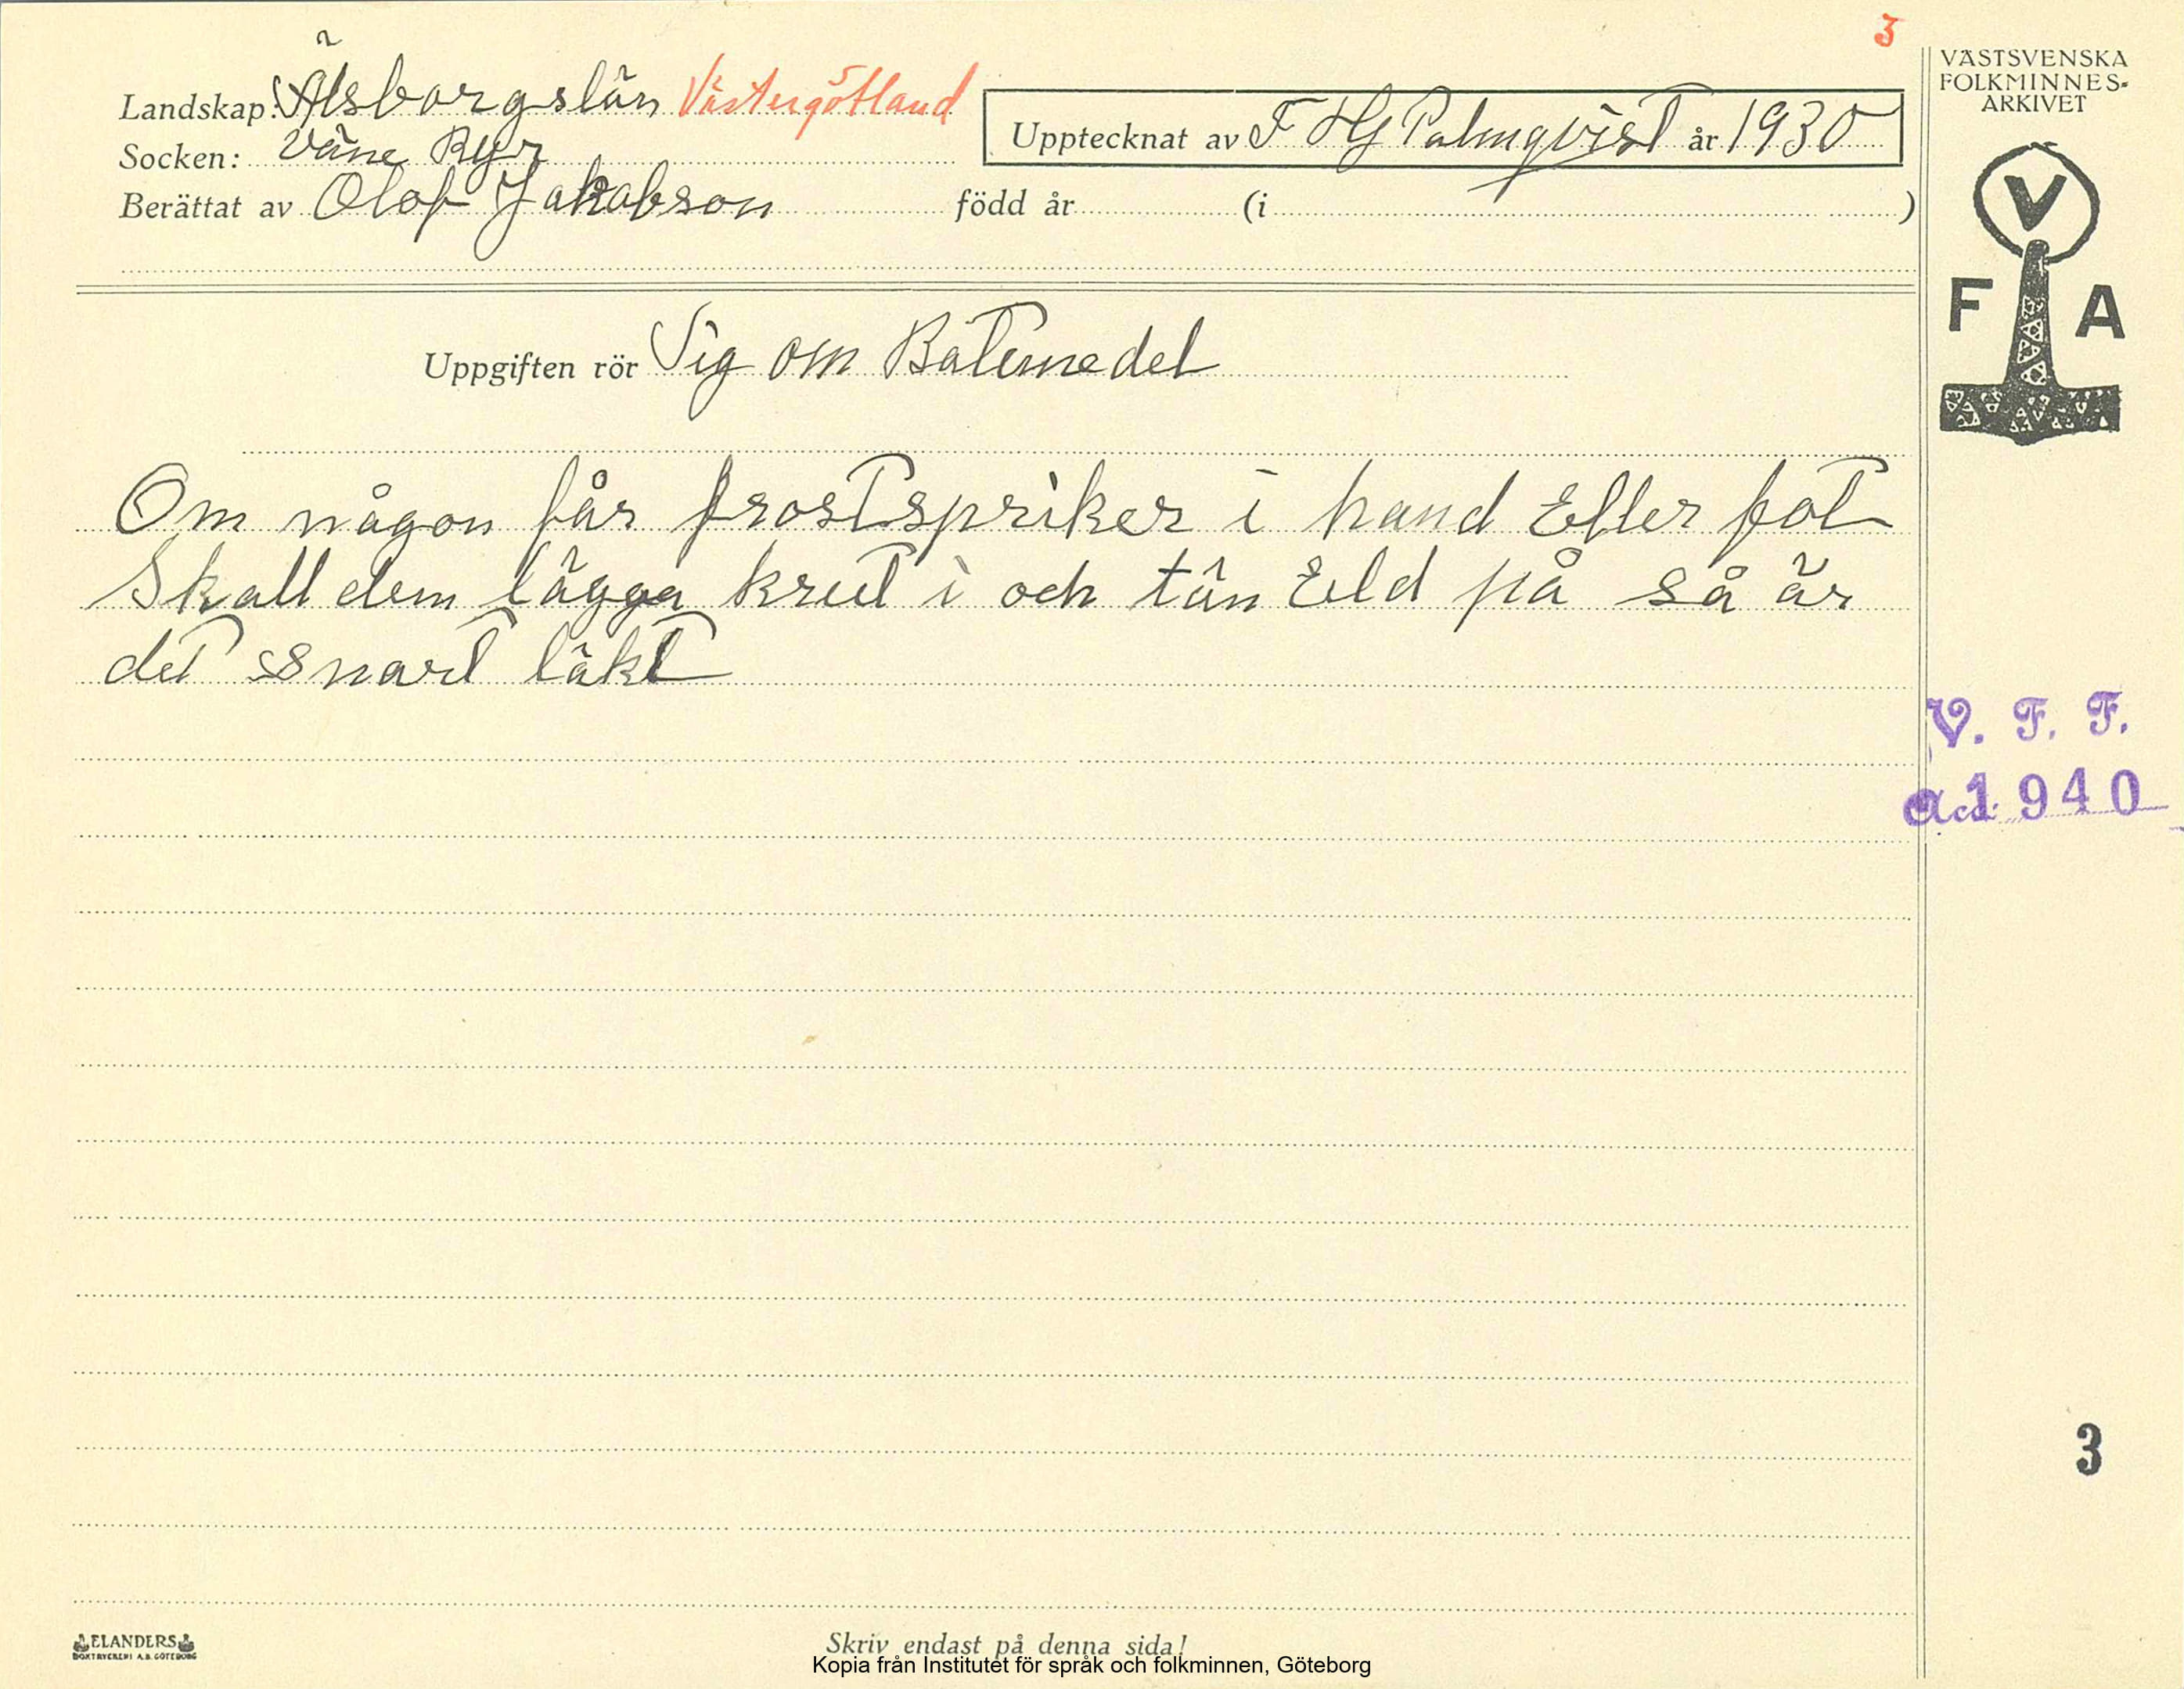 3
VÄSTSVENSKA
FOLKMINNES-
ARKIVET
Landskap: Älsborgslän Västergötland
Upptecknat av F HG Palmqvist år 1930
Socken: Väne Ryr
Berättat av Olof Jakobson född år (i )
V
F A
Uppgiften rör Sig om Botemedel
Om någon får frostspriker i hand Eller fot
Skall dem lägga krut i och tän Eld på så är
det snart läkt
V. F. F.
Acc. 1940
3
ELANDERS
BOKTRYCKERI A.B. GÖTEBORG
Skriv endast på denna sida!
Kopia från Institutet för språk och folkminnen, Göteborg